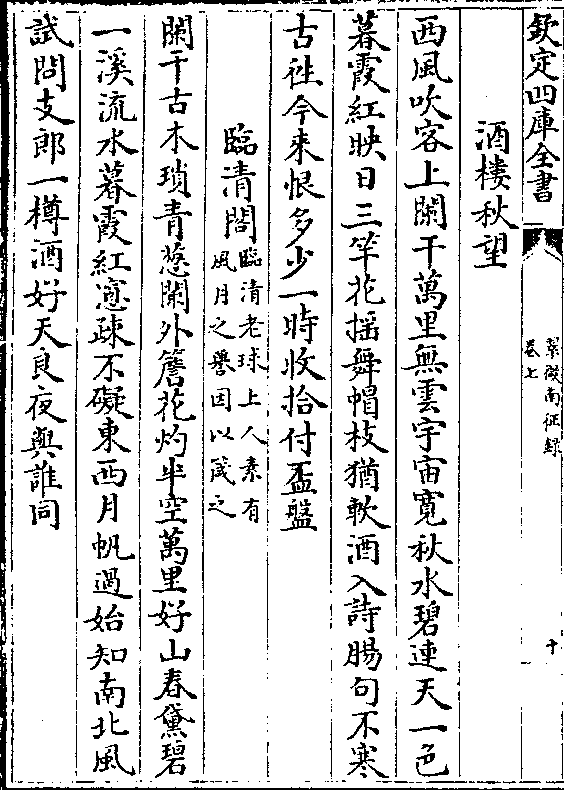 欽定四庫全書
翠微南征録
卷七
十
酒樓秋望
西風吹客上闌干萬里無雲宇宙寛秋水碧連天一色
暮霞紅映日三竿花揺舞帽枝猶軟酒入詩腸句不寒
古徃今來恨多少一時收拾付盃盤
臨清閣臨清老球上人素有
風月之譽因以箴之
闌干古木瑣青葱闌外簷花灼半空萬里好山春黛碧
一溪流水暮霞紅窓疎不礙東西月帆過始知南北風
試問支郎一樽酒好天良夜與誰同